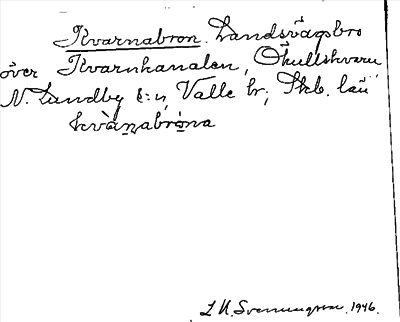 Kvarnabron. Landsvägsbro
över Kvarnkanalen, Ökullskvarn
N. Lundby s:n, Valle hr; Skb. län
kvànabròna
L M. Svenungsson. 1946.